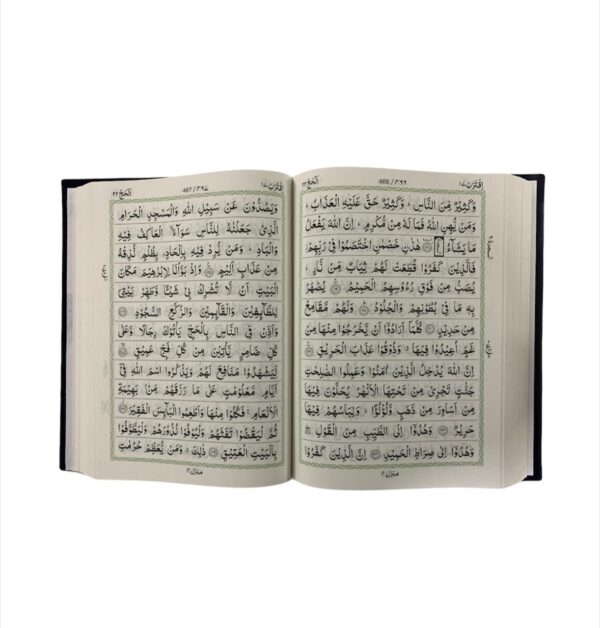 اِقْتَرَبَ ١٧
466 / ٤٦٦
اَلْحَجّ ٢٢
وَكَثِيْرٌ مِّنَ النَّاسِ ؕ وَكَثِيْرٌ حَقَّ عَلَيْهِ الْعَذَابُ ؕ
وَمَنْ يُّهِنِ اللّٰهُ فَمَا لَهٗ مِنْ مُّكْرِمٍ ؕ اِنَّ اللّٰهَ يَفْعَلُ
مَا يَشَآءُ ۩ ﴿۱۸﴾ هٰذٰنِ خَصْمٰنِ اخْتَصَمُوْا فِيْ رَبِّهِمْ ؗ
فَالَّذِيْنَ كَفَرُوْا قُطِّعَتْ لَهُمْ ثِيَابٌ مِّنْ نَّارٍ ؕ
يُصَبُّ مِنْ فَوْقِ رُءُوْسِهِمُ الْحَمِيْمُ ﴿۱۹﴾ يُصْهَرُ
بِهٖ مَا فِيْ بُطُوْنِهِمْ وَالْجُلُوْدُ ﴿۲۰﴾ وَلَهُمْ مَّقَامِعُ
مِنْ حَدِيْدٍ ﴿۲۱﴾ كُلَّمَاۤ اَرَادُوْۤا اَنْ يَّخْرُجُوْا مِنْهَا مِنْ
غَمٍّ اُعِيْدُوْا فِيْهَا ۗ وَذُوْقُوْا عَذَابَ الْحَرِيْقِ ﴿۲۲﴾
اِنَّ اللّٰهَ يُدْخِلُ الَّذِيْنَ اٰمَنُوْا وَعَمِلُوا الصّٰلِحٰتِ
جَنّٰتٍ تَجْرِيْ مِنْ تَحْتِهَا الْاَنْهٰرُ يُحَلَّوْنَ فِيْهَا
مِنْ اَسَاوِرَ مِنْ ذَهَبٍ وَّلُؤْلُؤًا ؕ وَلِبَاسُهُمْ فِيْهَا
حَرِيْرٌ ﴿۲۳﴾ وَهُدُوْۤا اِلَى الطَّيِّبِ مِنَ الْقَوْلِ ۖۚ
وَهُدُوْۤا اِلٰى صِرَاطِ الْحَمِيْدِ ﴿۲۴﴾ اِنَّ الَّذِيْنَ كَفَرُوْا
منزل ٤
اِقْتَرَبَ ١٧
467 / ٤٦٧
اَلْحَجّ ٢٢
وَيَصُدُّوْنَ عَنْ سَبِيْلِ اللّٰهِ وَالْمَسْجِدِ الْحَرَامِ
الَّذِيْ جَعَلْنٰهُ لِلنَّاسِ سَوَآءَ ۨالْعَاكِفُ فِيْهِ
وَالْبَادِ ؕ وَمَنْ يُّرِدْ فِيْهِ بِاِلْحَادٍۭ بِظُلْمٍ نُّذِقْهُ
مِنْ عَذَابٍ اَلِيْمٍ ﴿۲۵﴾ وَاِذْ بَوَّاْنَا لِاِبْرٰهِيْمَ مَكَانَ
الْبَيْتِ اَنْ لَّا تُشْرِكْ بِيْ شَيْـًٔا وَّطَهِّرْ بَيْتِيَ
لِلطَّآئِفِيْنَ وَالْقَآئِمِيْنَ وَالرُّكَّعِ السُّجُوْدِ ﴿۲۶﴾
وَاَذِّنْ فِي النَّاسِ بِالْحَجِّ يَاْتُوْكَ رِجَالًا وَّعَلٰى
كُلِّ ضَامِرٍ يَّاْتِيْنَ مِنْ كُلِّ فَجٍّ عَمِيْقٍ ﴿۲۷﴾
لِّيَشْهَدُوْا مَنَافِعَ لَهُمْ وَيَذْكُرُوا اسْمَ اللّٰهِ فِيْۤ
اَيَّامٍ مَّعْلُوْمٰتٍ عَلٰى مَا رَزَقَهُمْ مِّنْۢ بَهِيْمَةِ
الْاَنْعَامِ ۚ فَكُلُوْا مِنْهَا وَاَطْعِمُوا الْبَآئِسَ الْفَقِيْرَ ﴿۲۸﴾
ثُمَّ لْيَقْضُوْا تَفَثَهُمْ وَلْيُوْفُوْا نُذُوْرَهُمْ وَلْيَطَّوَّفُوْا
بِالْبَيْتِ الْعَتِيْقِ ﴿۲۹﴾ ذٰلِكَ ۗ وَمَنْ يُّعَظِّمْ حُرُمٰتِ
منزل ٤